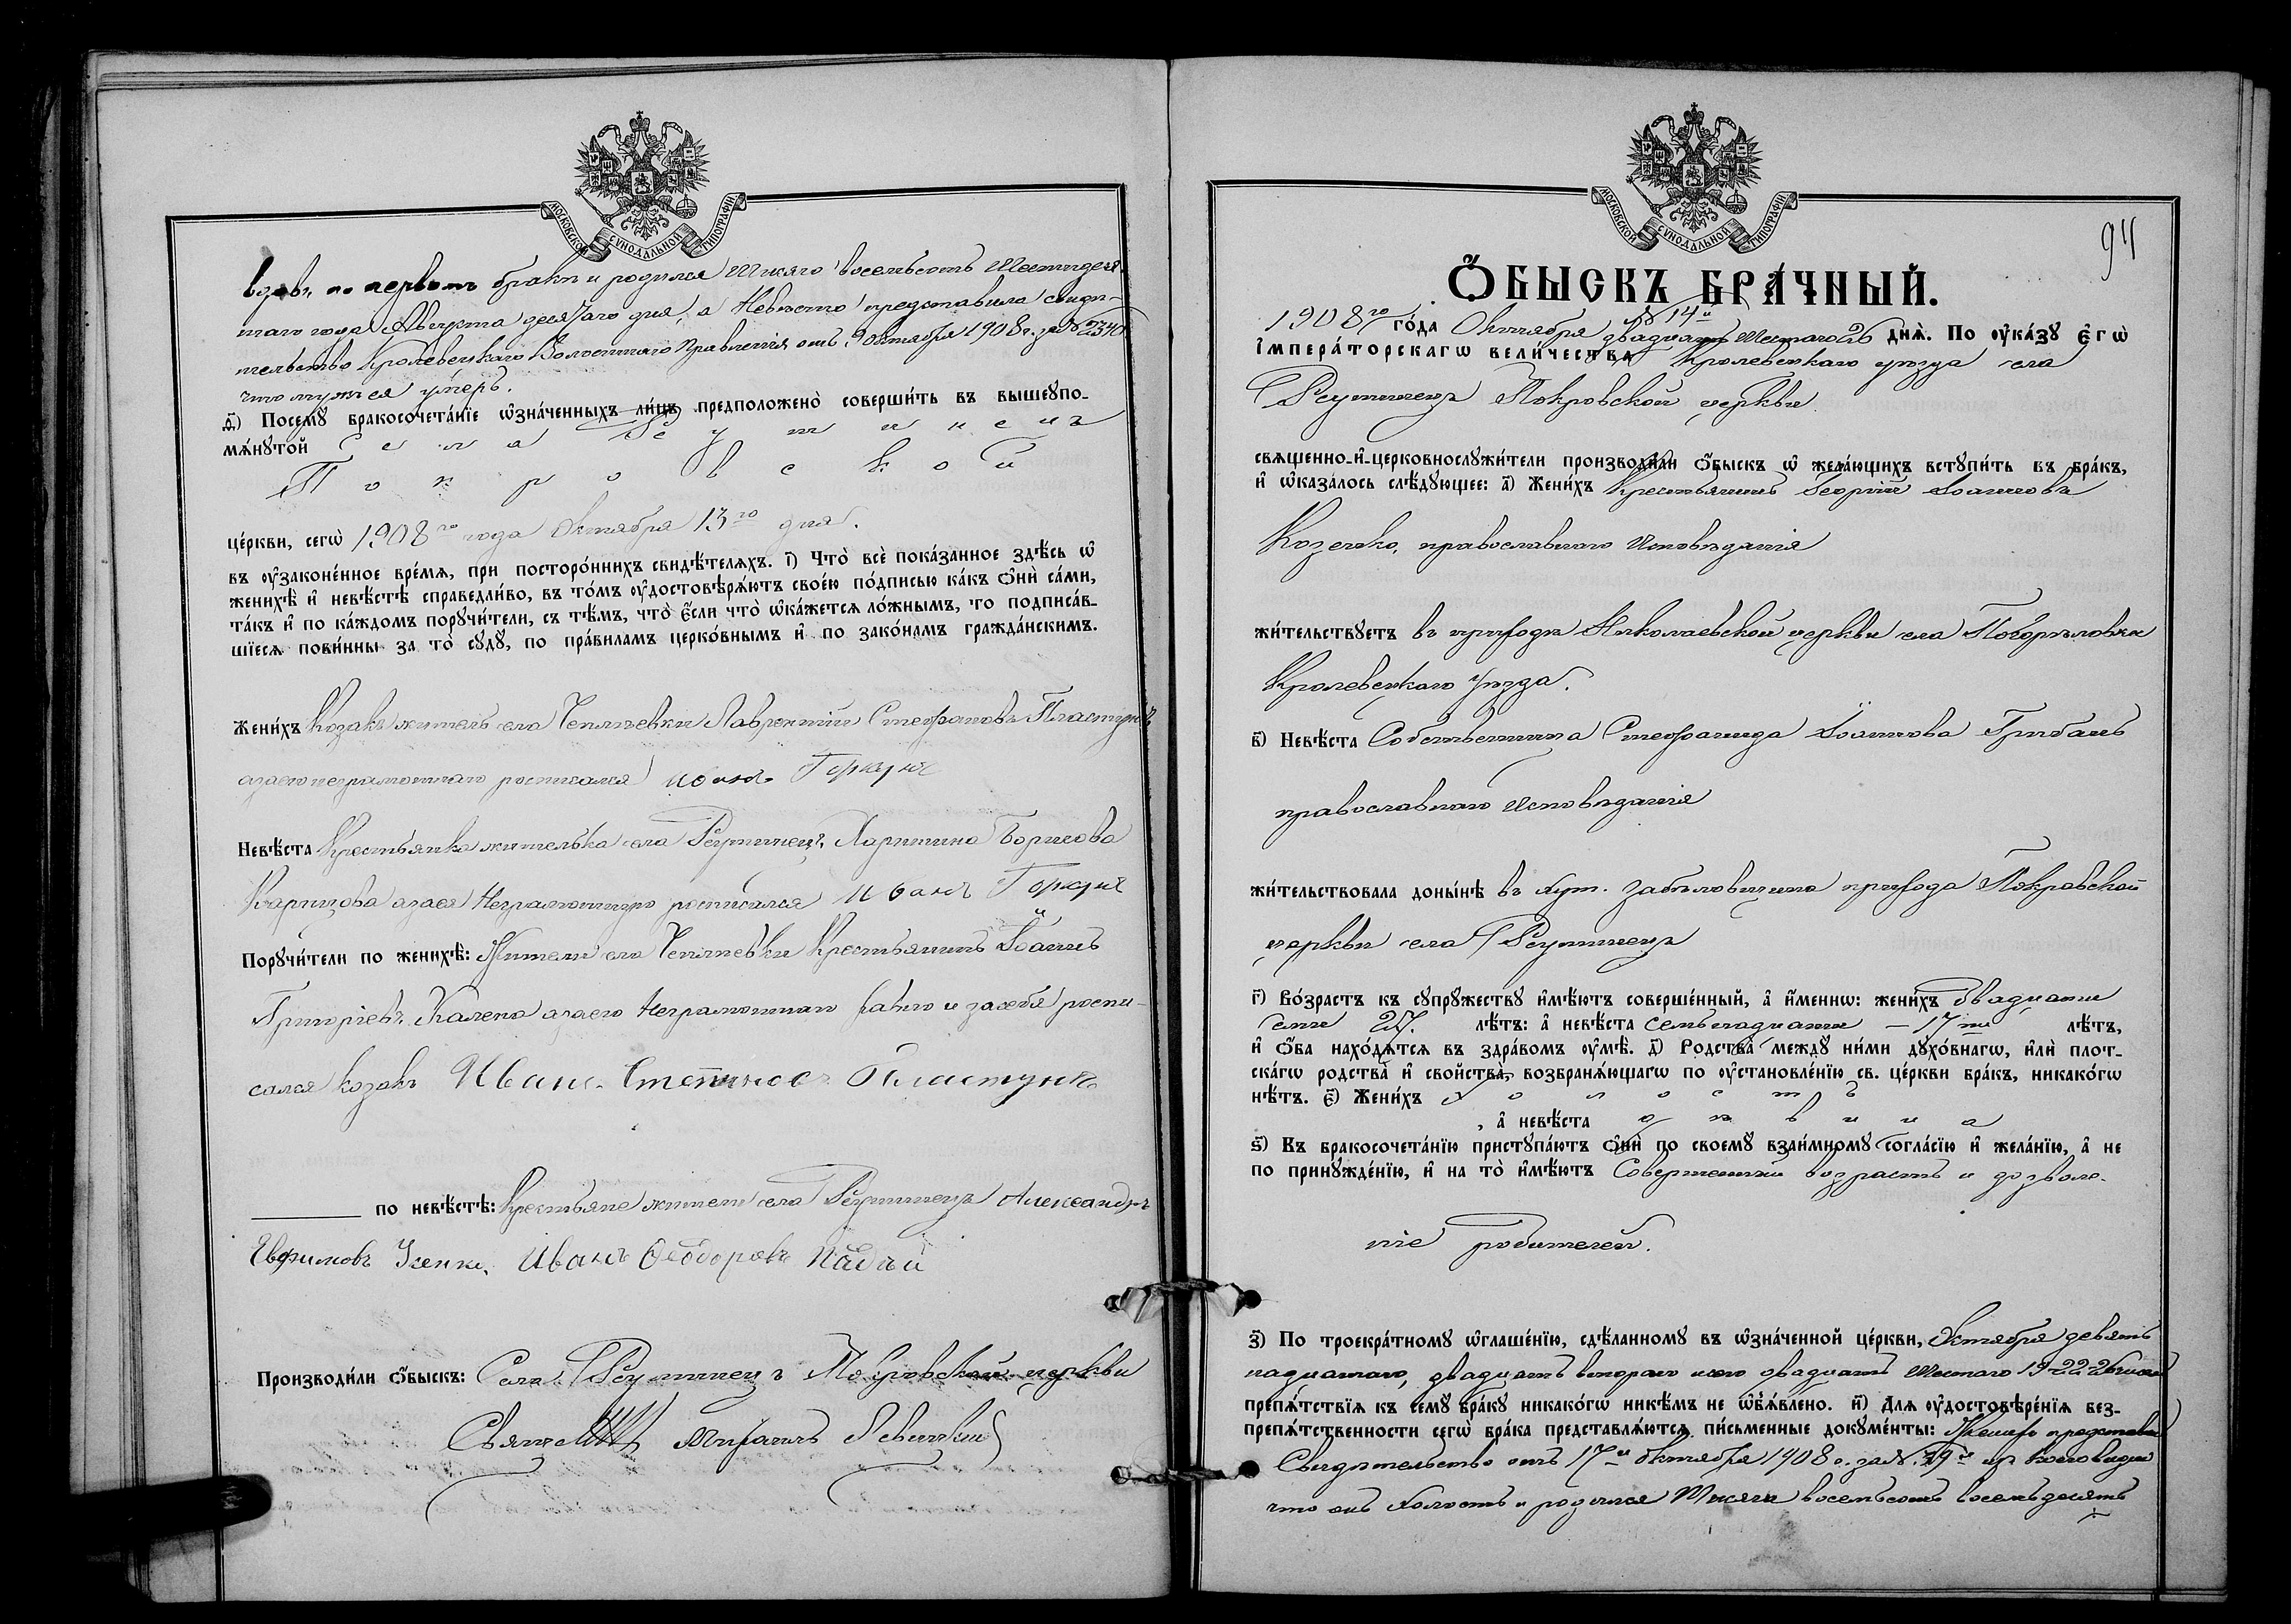 МОСКОВСКОЙ СУНОДАЛЬНОЙ ТИПОГРАФІИ
вдовъ по первомъ бракѣ и родился тысяча восемьсотъ шестидеся
таго года Августа десятаго дня, а Невѣста представила свидѣ-
тельство Кролевецкаго Волостнаго Правленія отъ 9 октября 1908 г. за № 2340
что мужъ ея умеръ.
д҃) Посемꙋ бракосочета́нїе ѡ҆зна́ченныхъ ли́цъ предположено̀ соверши́ть въ вышеꙋпо-
мѧ́нꙋтой Села Реутинецъ
Покровской
це́ркви, сегѡ̀ 1908 го года Октября 13 го дня.
въ ᲂу҆законе́нное вре́мѧ, при посторо́ннихъ свидѣ́телѧхъ. і҃) Что̀ всѐ пока́занное здѣ́сь ѡ҆
женихѣ̀ и҆ невѣ́стѣ справедли́во, въ то́мъ ᲂу҆достовѣрѧ́ютъ свое́ю по́дписью ка́къ ѻ҆нѝ са́ми,
та́къ и҆ по ка́ждомъ порꙋчи́тели, съ тѣ́мъ, что̀ є҆́сли что̀ ѡ҆ка́жетсѧ ло́жнымъ, то подписа́в-
шїесѧ пови́нны за то̀ сꙋдꙋ̀, по пра́виламъ церко́внымъ и҆ по зако́намъ гражда́нскимъ.
Жени́хъ Козакъ житель села Чепліевки Лаврентій Стефановъ Пластунъ
а за его неграмотнаго росписался
Невѣ́ста Крестьянка жителька села Реутинецъ Харитина Борисова
Карпцова а за ея Неграмотную росписался
Порꙋчи́тели по женихѣ̀: Жители села Чепліевки Крестьянинъ Іоаннъ
Григоріевъ Калена а за его Неграмотнаго и за себя роспи-
сался козакъ Иванъ Степановъ Пластунъ
по невѣ́стѣ: Крестьяне жители села Реутинецъ Александръ
Евфимовъ Усенко, Иванъ Ѳеодоровъ Падій
Производи́ли ѻ҆́быскъ: Села Реутинецъ Покровской церкви
Священникъ Михаилъ Левицкій
МОСКОВСКОЙ СУНОДАЛЬНОЙ ТИПОГРАФІИ
94
Ѻ҆́БЫСКЪ БРА́ЧНЫЙ.
№ 14 й
1908 го го́да Октября двадцать Шестаго 26 днѧ̀. По ᲂу҆ка́зꙋ є҆гѡ̀
і҆мпера́торскагѡ вели́чества Кролевецкаго уѣзда села
Реутинецъ Покровской церкви
свѧщенно-и҆-церковнослꙋжи́тели производи́ли ѻ҆́быскъ ѡ҆ жела́ющихъ встꙋпи́ть въ бра́къ,
и҆ ѡ҆каза́лось слѣ́дꙋющее: а҃) Жени́хъ Крестьянинъ Георгій Іоанновъ
Козечко, православнаго Исповѣданія
жи́тельствꙋетъ въ приходѣ Николаевской церкви села Погорѣловки
Кролевецкаго уѣзда.
в҃) Невѣ́ста Собственница Стефанида Іоаннова Грибанъ
православнаго Исповѣданія
жи́тельствовала доны́нѣ въ хут. Забѣловщина прихода Покровской
церкви села Реутинецъ
г҃) Во́зрастъ къ сꙋпрꙋ́жествꙋ и҆мѣ́ютъ соверше́нный, а҆ и҆́меннѡ: жени́хъ двадцати
семи 27. лѣ́тъ: а҆ невѣ́ста семьнадцати – 17 ти лѣ́тъ,
и҆ ѻ҆́ба нахо́дѧтсѧ въ здра́вомъ ᲂу҆мѣ̀. д҃) Родства̀ междꙋ̀ ни́ми дꙋхо́внагѡ, и҆лѝ плот-
ска́гѡ родства̀ и҆ свойства̀, возбранѧ́ющагѡ по ᲂу҆становле́нїю св. це́ркви бра́къ, никако́гѡ
нѣ́тъ. є҃) Жени́хъ Холостъ
, а҆ невѣ́ста дѣвица
ѕ҃) Въ бракосочета́нїю пристꙋпа́ютъ ѻ҆нѝ по своемꙋ̀ взаи́мномꙋ согла́сїю и҆ жела́нїю, а҆ не
по принꙋжде́нїю, и҆ на то̀ и҆мѣ́ютъ Совершенный возрастъ и дозволе-
ніе родителей.
з҃) По троекра́тномꙋ ѡ҆глаше́нїю, сдѣ́ланномꙋ въ ѡ҆зна́ченной це́ркви, Октября девять
надцатаго, двадцать втораго и двадцать Шестаго 19 22 26 числа
препѧ́тствїѧ къ семꙋ̀ бра́кꙋ никако́гѡ никѣ́мъ не ѡ҆б̾ѧ́влено. и҃) Длѧ ᲂу҆достовѣре́нїѧ без-
препѧ́тственности сегѡ̀ бра́ка представлѧ́ютсѧ пи́сьменные докꙋме́нты: Женихъ представилъ
Свидѣтельство отъ 17 го октября 1908 г. за №. 29 изъ коего видно
что онъ Холостъ и родился Тысяча восемьсотъ восемьдесятъ